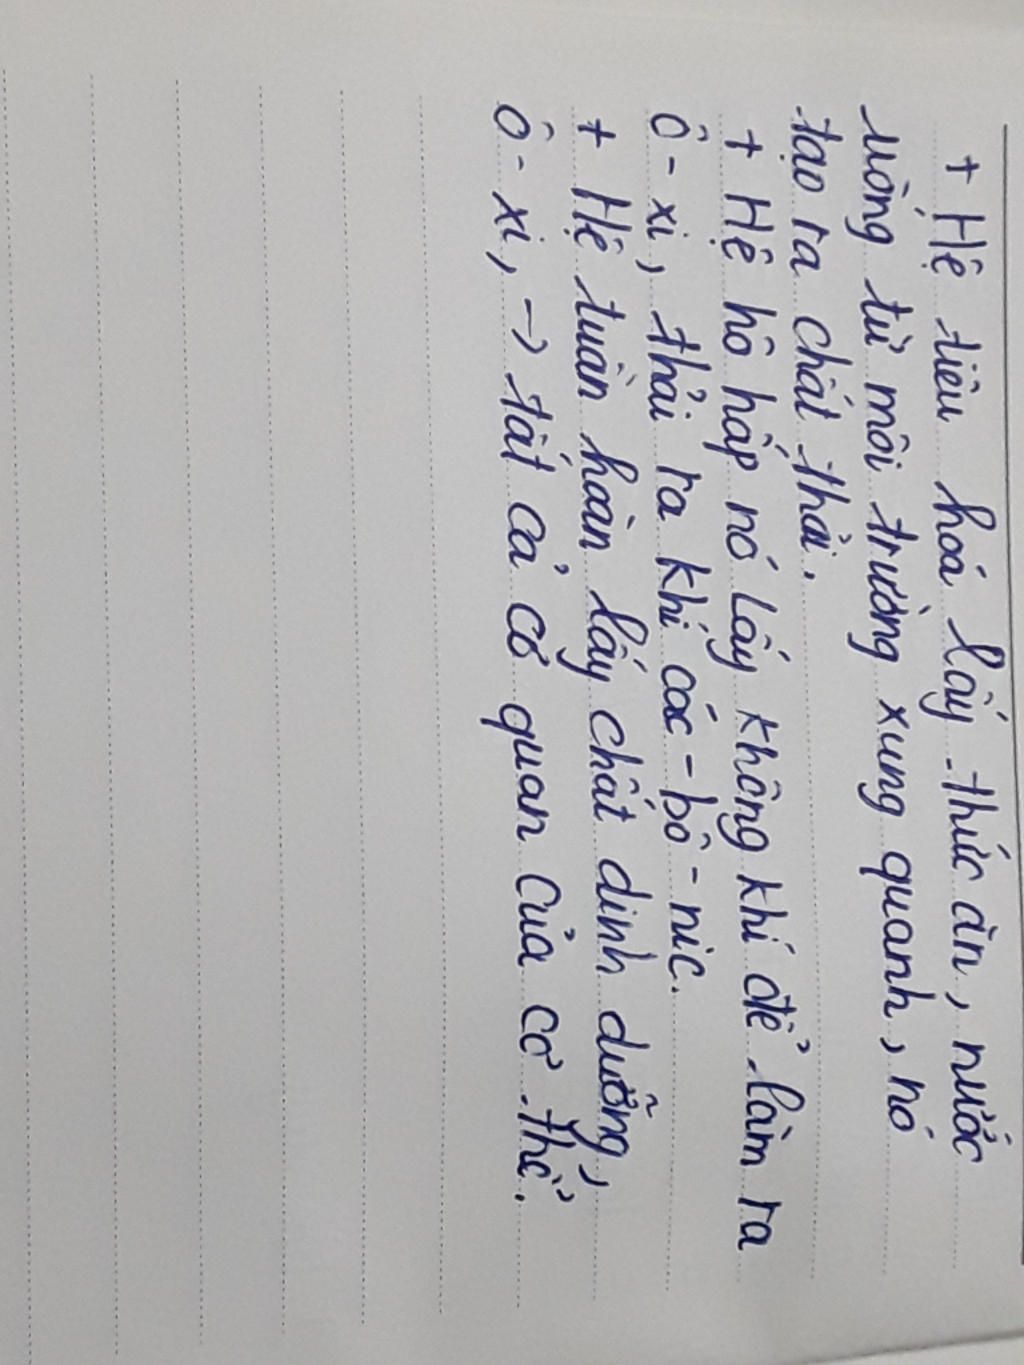 + Hệ tiêu hoá lấy thức ăn, nước
uống từ môi trường xung quanh, nó
tạo ra chất thải.
+ Hệ hô hấp nó lấy không khí để làm ra
ô - xi, thải ra khí các - bô - nic.
+ Hệ tuần hoàn lấy chất dinh dưỡng,
ô - xi, → tất cả cơ quan của cơ thể.